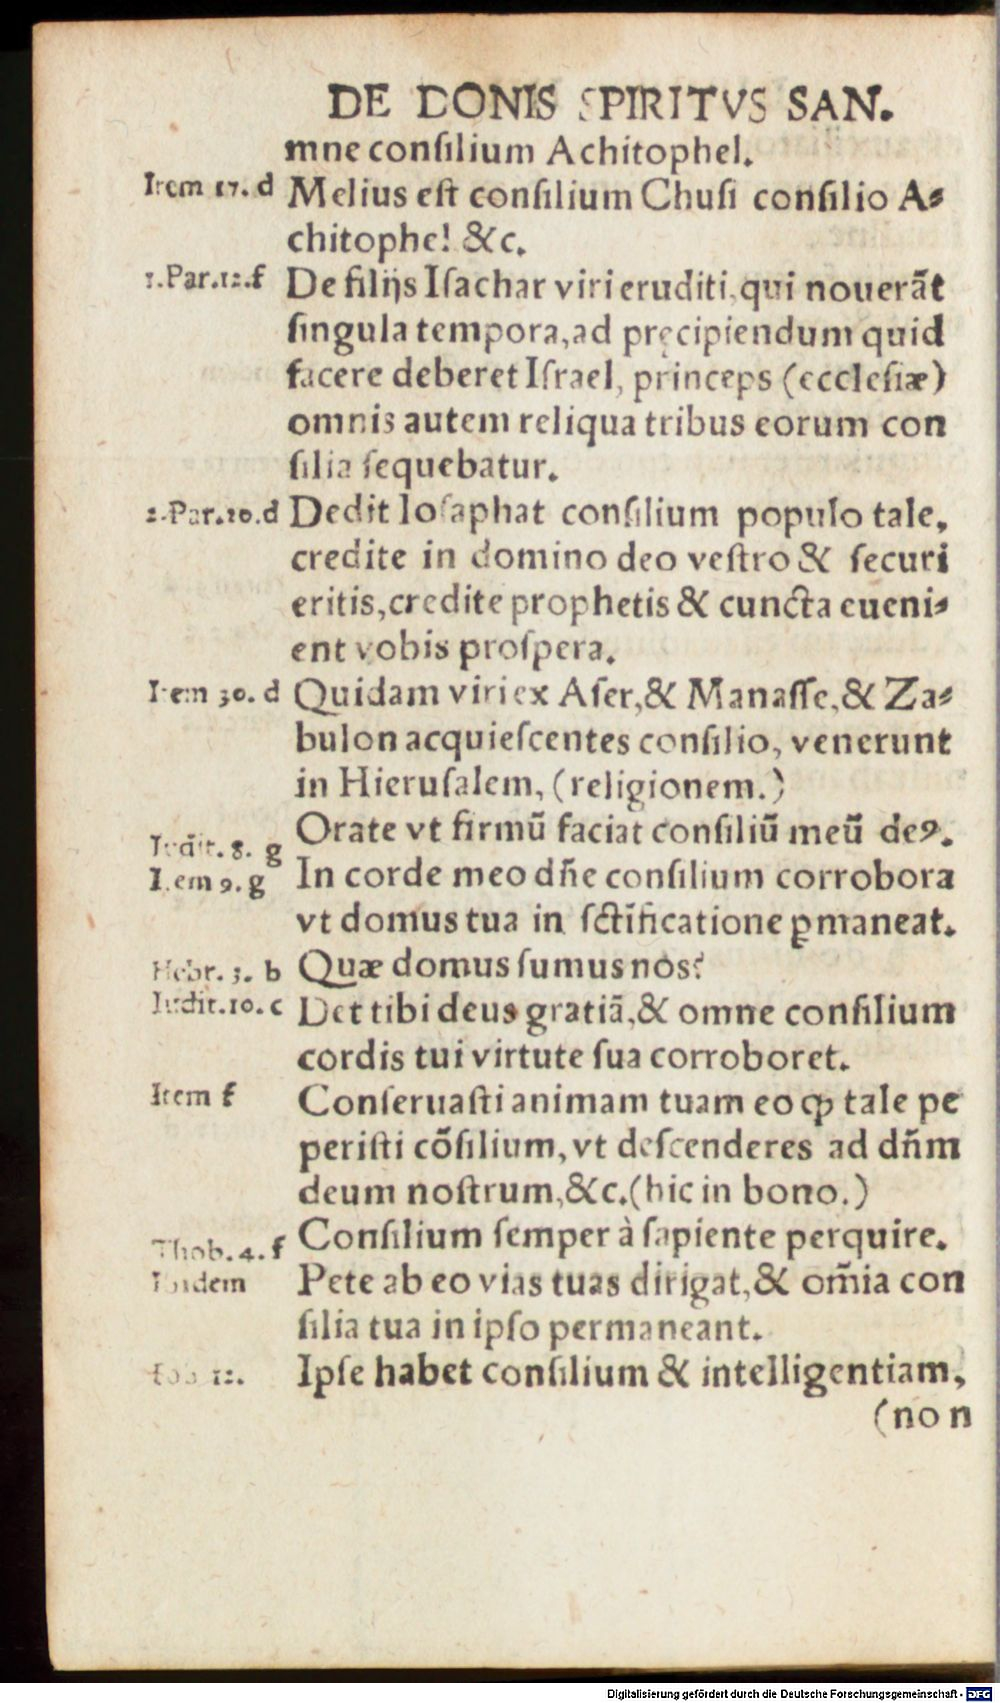 DE DONIS SPIRITVS SAN.
mne conſilium Achitophel.
Item 17. d Melius eſt conſilium Chuſi conſilio A⸗
chitophel &c.
1.Par.12.f De filijs Iſachar viri eruditi, qui nouerãt
ſingula tempora, ad pręcipiendum quid
facere deberet Iſrael, princeps (eccleſiæ)
omnis autem reliqua tribus eorum con
ſilia ſequebatur.
2.Par.20.d Dedit Ioſaphat conſilium populo tale,
credite in domino deo veſtro & ſecuri
eritis, credite prophetis & cuncta eueni⸗
ent vobis proſpera.
Item 30. d Quidam viri ex Aſer, & Manaſſe, & Za⸗
bulon acquieſcentes conſilio, venerunt
in Hieruſalem, (religionem.)
Iudit. 8. g Orate vt firmũ faciat conſiliũ meũ deꝰ.
Item 9. g In corde meo dñe conſilium corrobora
vt domus tua in ſct̃ificatione ꝑmaneat.
Hebr. 3. b Quæ domus ſumus nos?
Iudit.10. c Det tibi deus gratiã, & omne conſilium
cordis tui virtute ſua corroboret.
Item f Conſeruaſti animam tuam eo ꝙ tale pe
periſti cõſilium, vt deſcenderes ad dñm
deum noſtrum, &c. (hic in bono.)
Thob. 4. f Conſilium ſemper à ſapiente perquire.
Ibidem Pete ab eo vias tuas dirigat, & om̃ia con
ſilia tua in ipſo permaneant.
Iob 12. Ipſe habet conſilium & intelligentiam,
(non
Digitalisierung gefördert durch die Deutsche Forschungsgemeinschaft - DFG